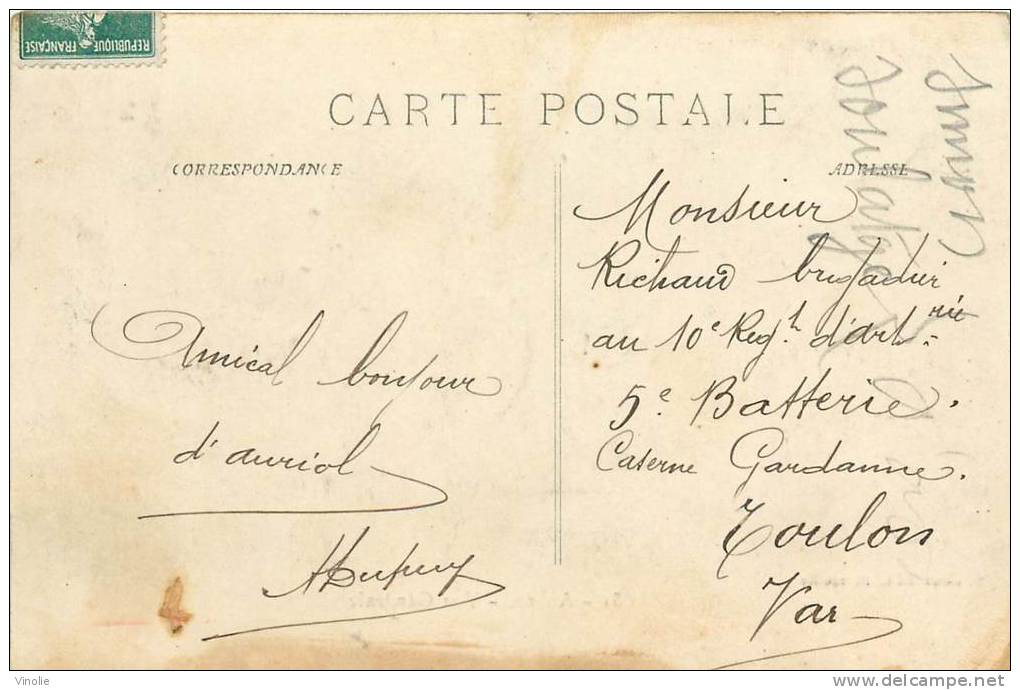 REPUBLIQUE FRANÇAISE
CARTE POSTALE
CORRESPONDANCE
ADRESSE
Amical bonjour
d'auriol
Monsieur
Richaud brigadier
au 10e Regt d'artrie
5e Batterie.
Caserne Gardanne.
Toulon
Var
Vinolie
delcampe.net